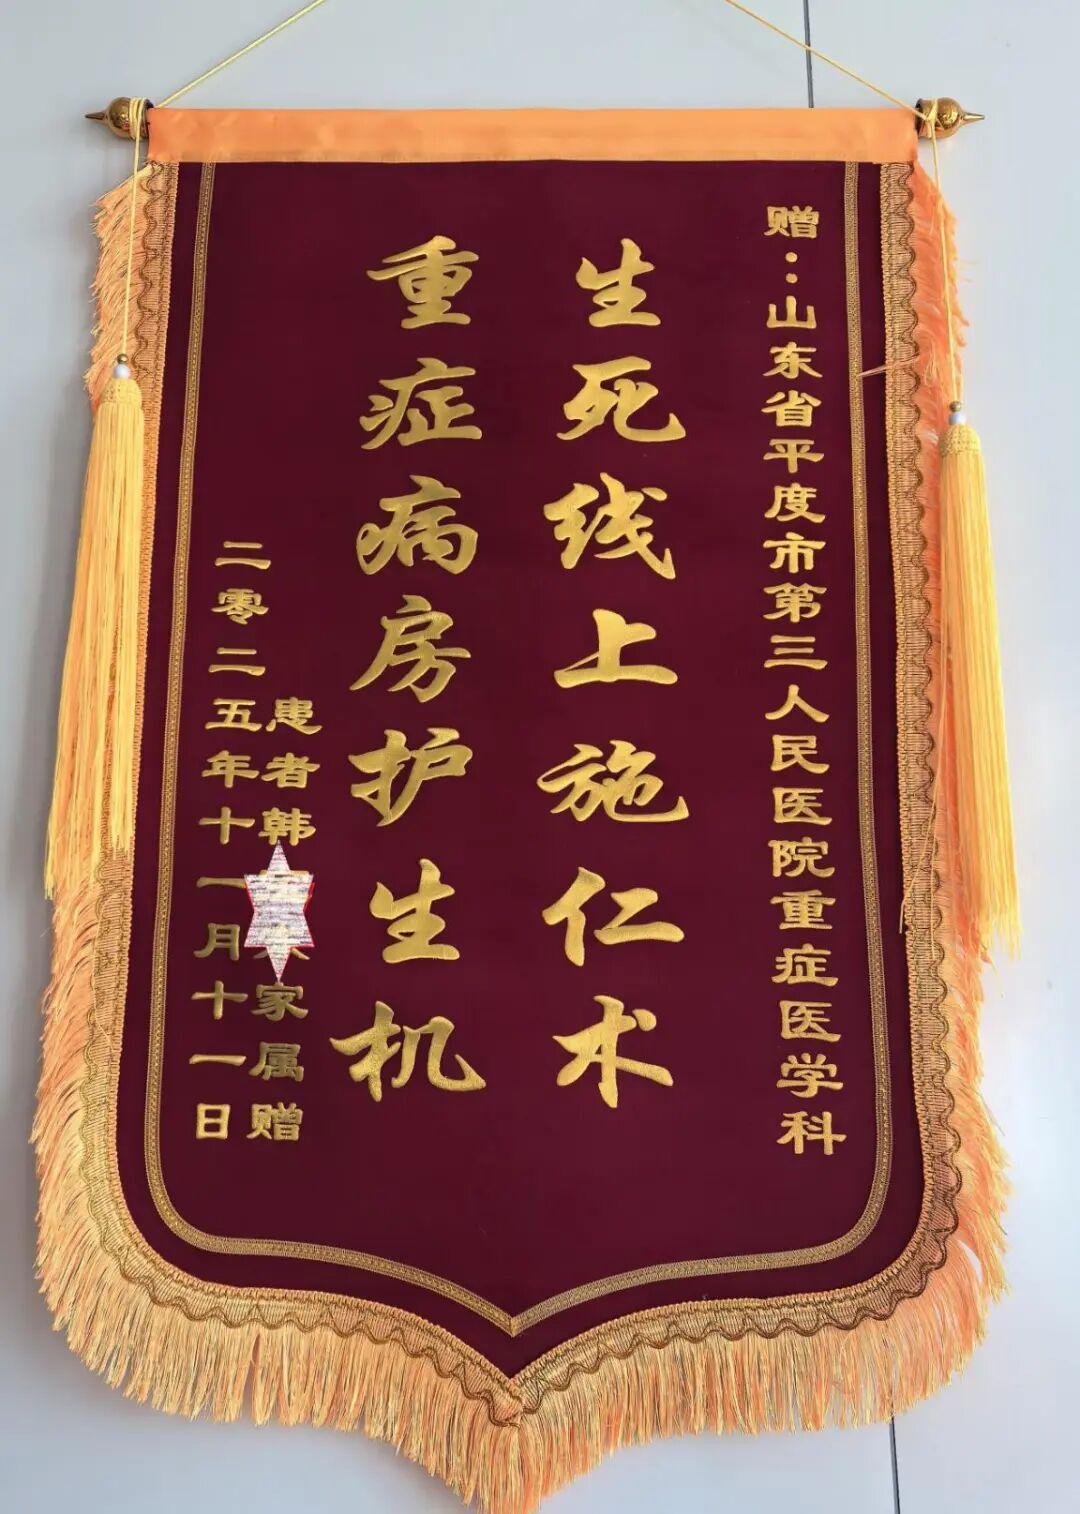 赠：山东省平度市第三人民医院重症医学科
生死线上施仁术
重症病房护生机
患者韩家属赠
二零二五年十一月十一日